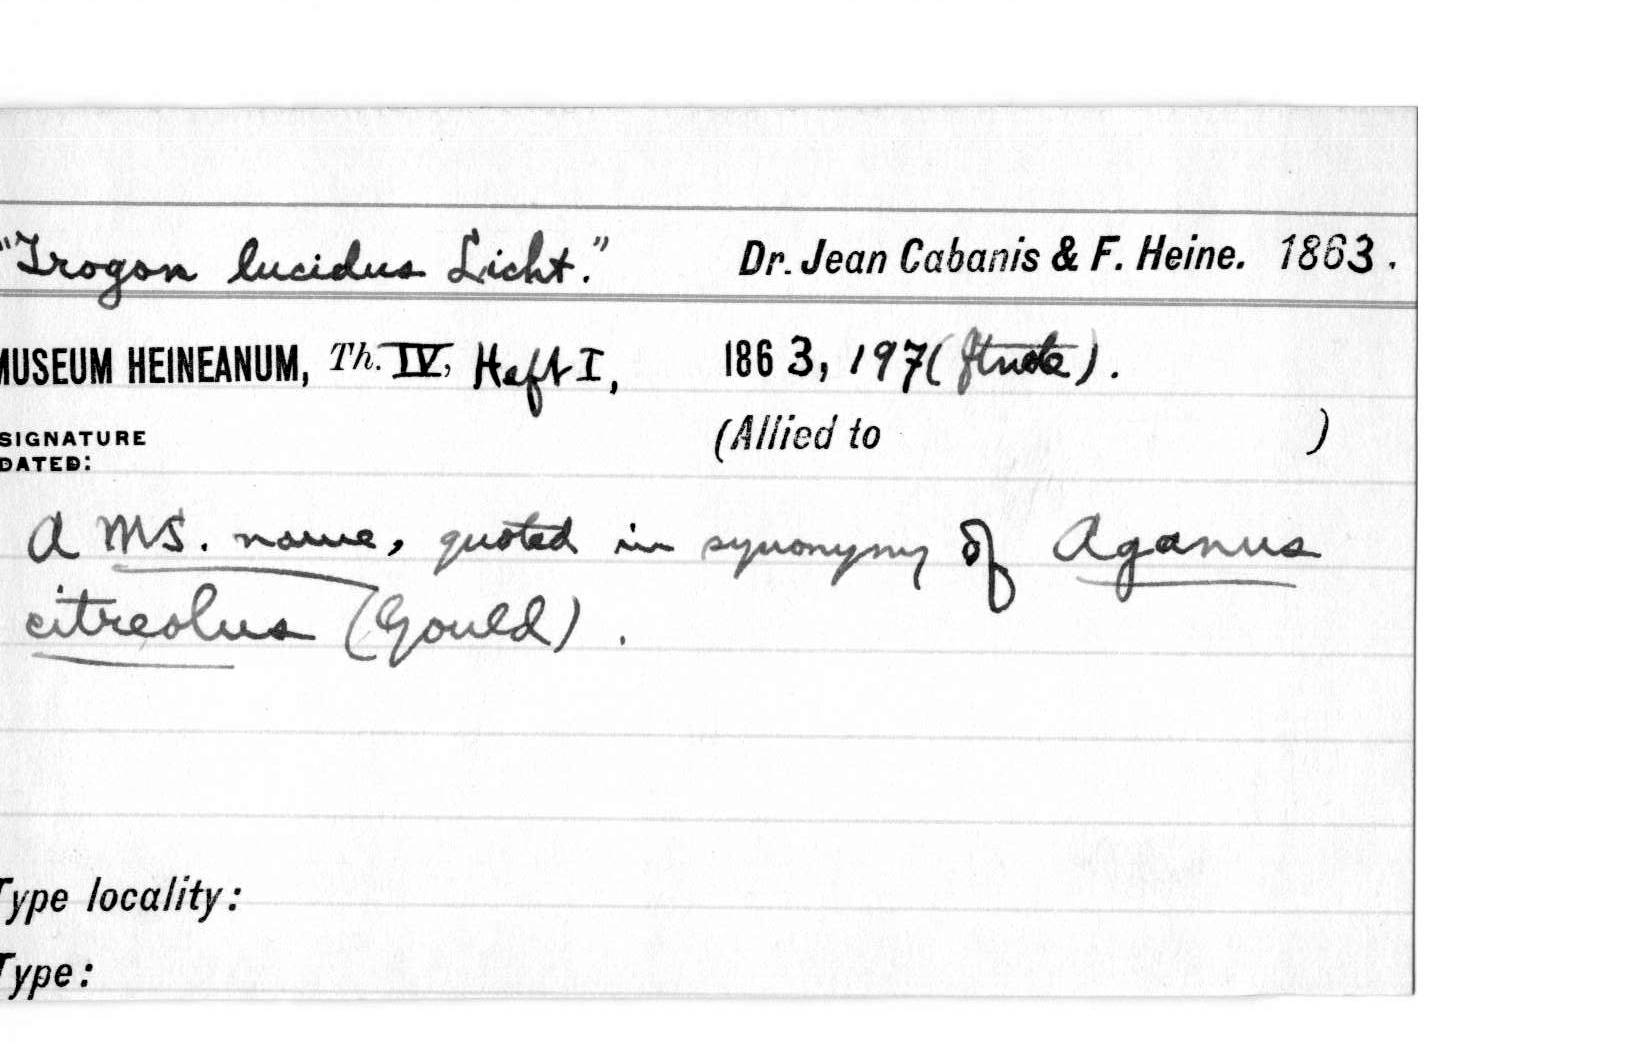 "Trogon lucidus Licht." Dr. Jean Cabanis & F. Heine. 1863.
MUSEUM HEINEANUM, Th. IV, Heft I, 1863, 197 (ftnote).
SIGNATURE (Allied to )
DATED:
A MS. name, quoted in synonymy of Aganus
citreolus (Gould).
Type locality:
Type: